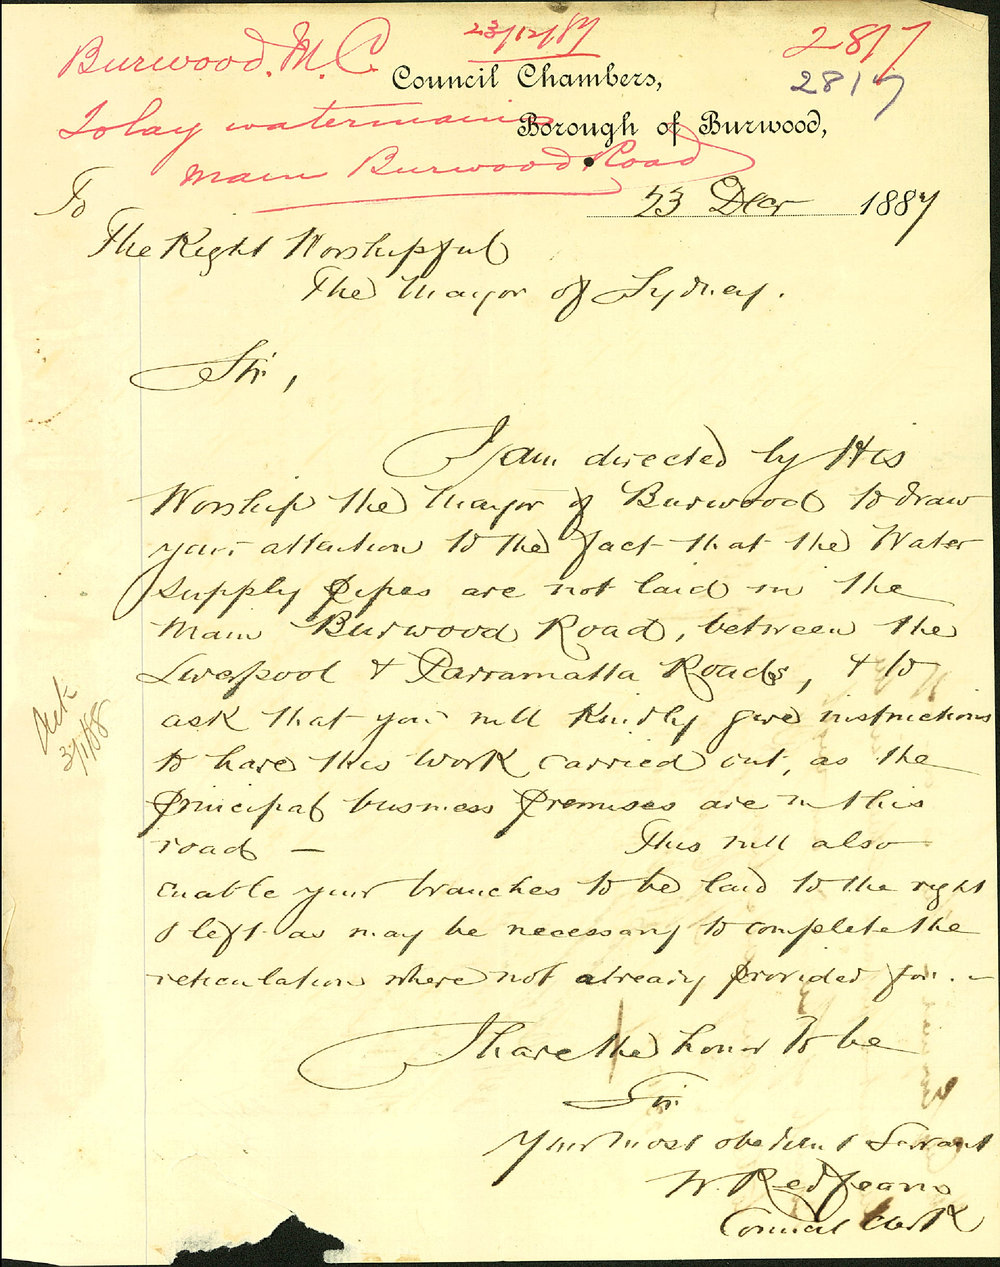 23/12/87
2817
2817
Burwood. M. C
Council Chambers,
To lay watermains
Borough of Burwood,
Main Burwood Road
23 Decr 1887
To
The Right Worshipful
The Mayor of Sydney.
Sir,
I am directed by His
Worship the Mayor of Burwood to draw
your attention to the fact that the Water
supply pipes are not laid in the
Main Burwood Road, between the
Liverpool & Parramatta Roads, & to
ask that you will kindly give instructions
to have this work carried out, as the
principal business premises are in this
road — This will also
enable your branches to be laid to the right
& left as may be necessary to complete the
reticulation where not already provided for. –
I have the honor to be
Sir
Your most obedient Servant
W. Redfearn
Council Clerk
Ack
3/1/88